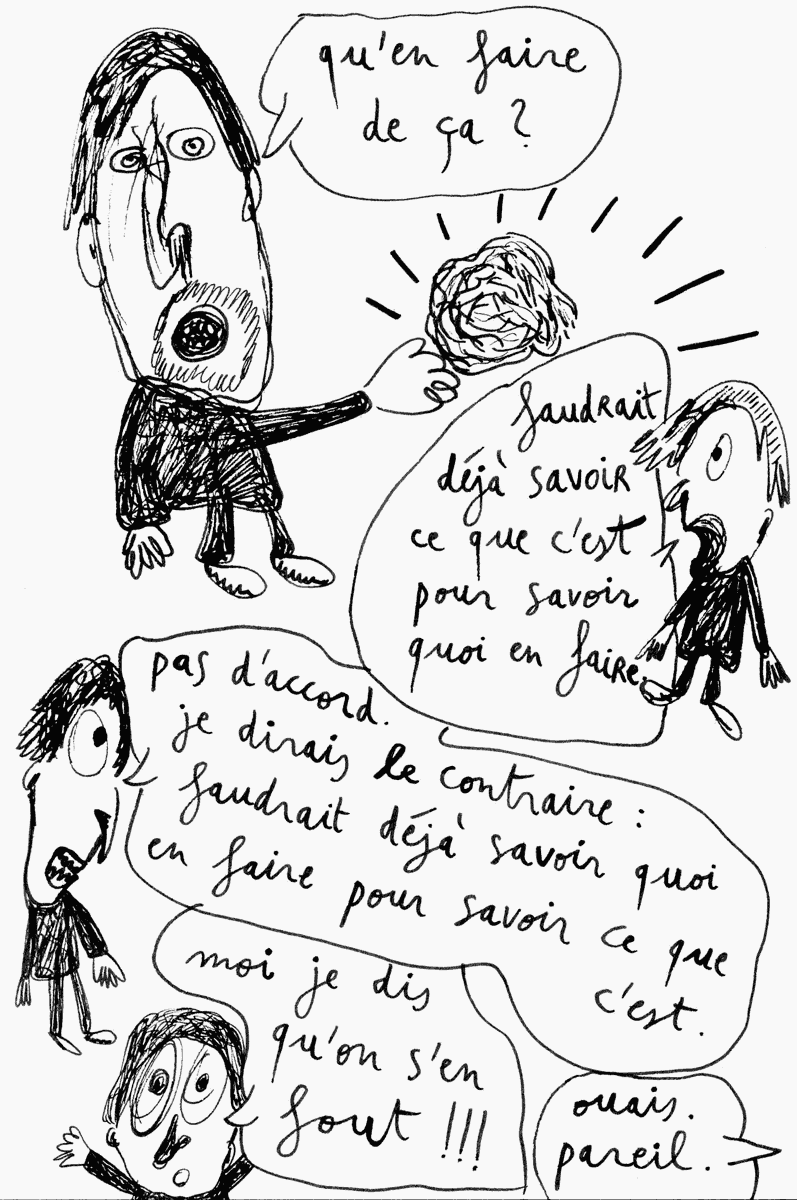 qu'en faire
de ça ?
faudrait
déjà savoir
ce que c'est
pour savoir
quoi en faire.
pas d'accord.
je dirais le contraire :
faudrait déjà savoir quoi
en faire pour savoir ce que
c'est.
moi je dis
qu'on s'en
fout !!!
ouais.
pareil.